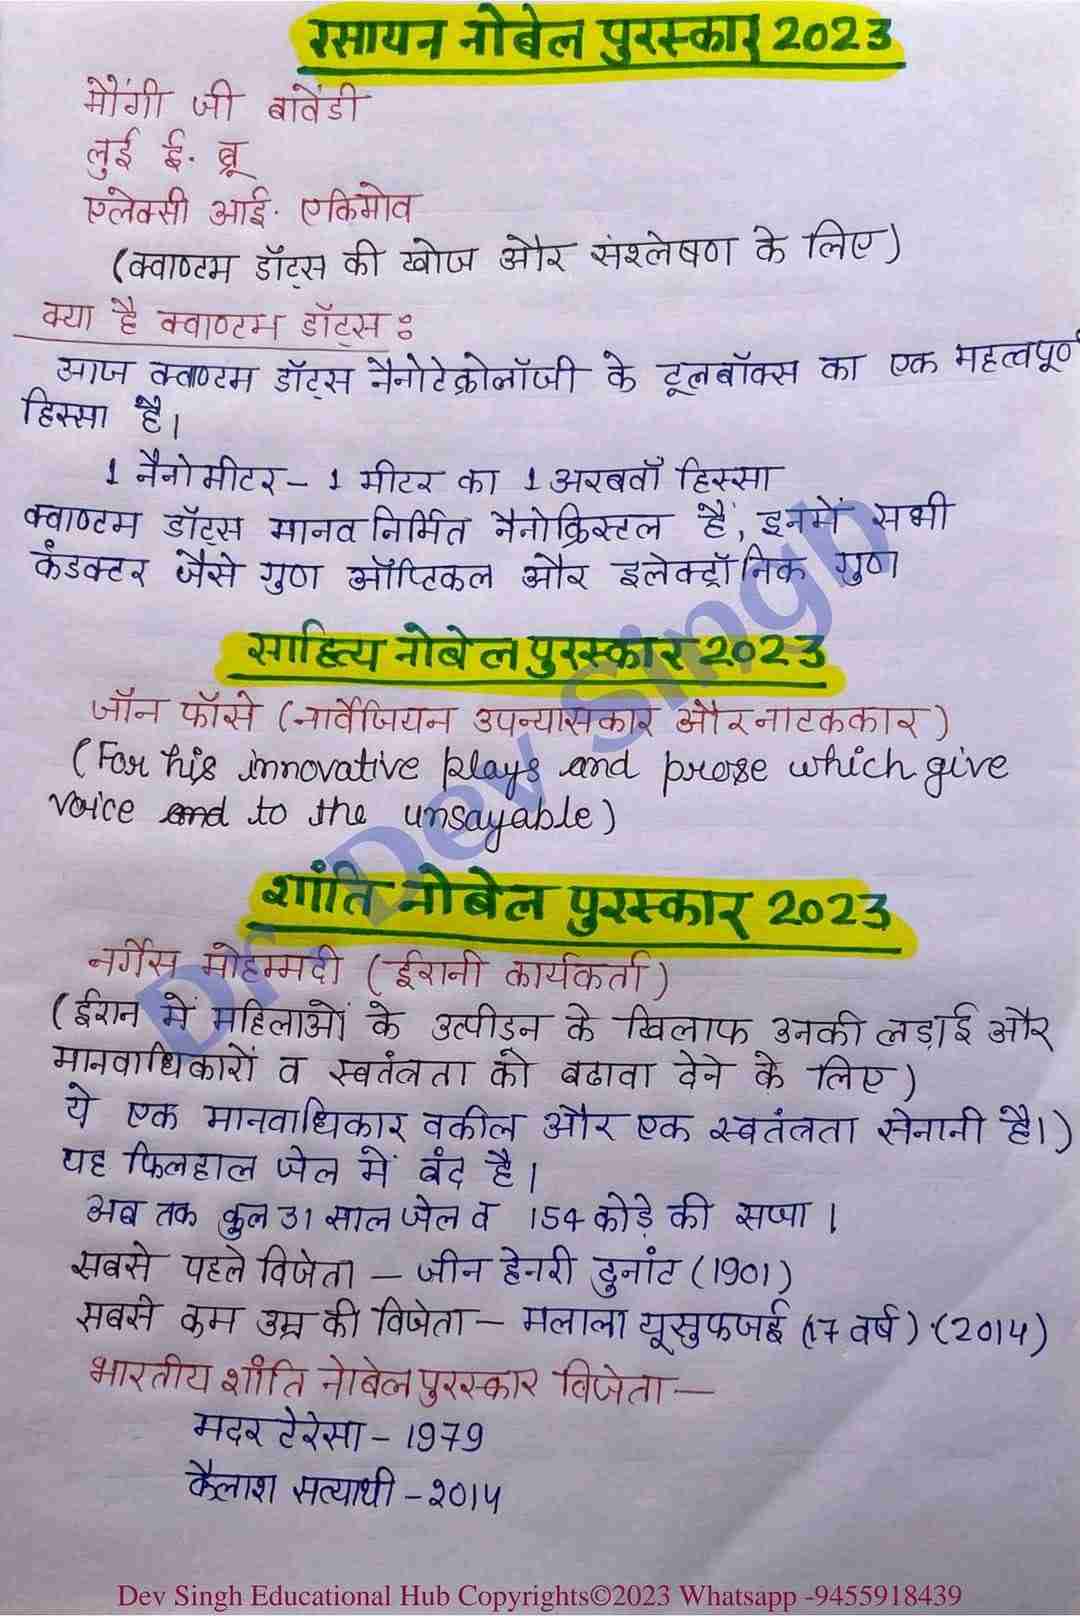 रसायन नोबेल पुरस्कार 2023
मौंगी जी बावेंडी
लुई ई. ब्रू
एलेक्सी आई. एकिमोव
(क्वाण्टम डॉट्स की खोज और संश्लेषण के लिए)
क्या है क्वाण्टम डॉट्स :
आज क्वाण्टम डॉट्स नैनोटेक्नोलॉजी के टूलबॉक्स का एक महत्वपूर्ण
हिस्सा है।
1 नैनोमीटर – 1 मीटर का 1 अरबवाँ हिस्सा
क्वाण्टम डॉट्स मानव निर्मित नैनोक्रिस्टल हैं, इनमें सभी
कंडक्टर जैसे गुण ऑप्टिकल और इलेक्ट्रॉनिक गुण
साहित्य नोबेल पुरस्कार 2023
जॉन फॉसे (नार्वेजियन उपन्यासकार और नाटककार)
(For his innovative plays and prose which give
voice and to the unsayable)
शांति नोबेल पुरस्कार 2023
नर्गेस मोहम्मदी (ईरानी कार्यकर्ता)
(ईरान में महिलाओं के उत्पीड़न के खिलाफ उनकी लड़ाई और
मानवाधिकारों व स्वतंत्रता को बढावा देने के लिए)
ये एक मानवाधिकार वकील और एक स्वतंत्रता सेनानी है।)
यह फिलहाल जेल में बंद है।
अब तक कुल 31 साल जेल व 154 कोड़े की सजा।
सबसे पहले विजेता – जीन हेनरी दुनांट (1901)
सबसे कम उम्र की विजेता – मलाला यूसुफजई (17 वर्ष) (2014)
भारतीय शांति नोबेल पुरस्कार विजेता –
मदर टेरेसा – 1979
कैलाश सत्यार्थी – 2014
Dr Dev Singh
Dev Singh Educational Hub Copyrights©2023 Whatsapp -9455918439